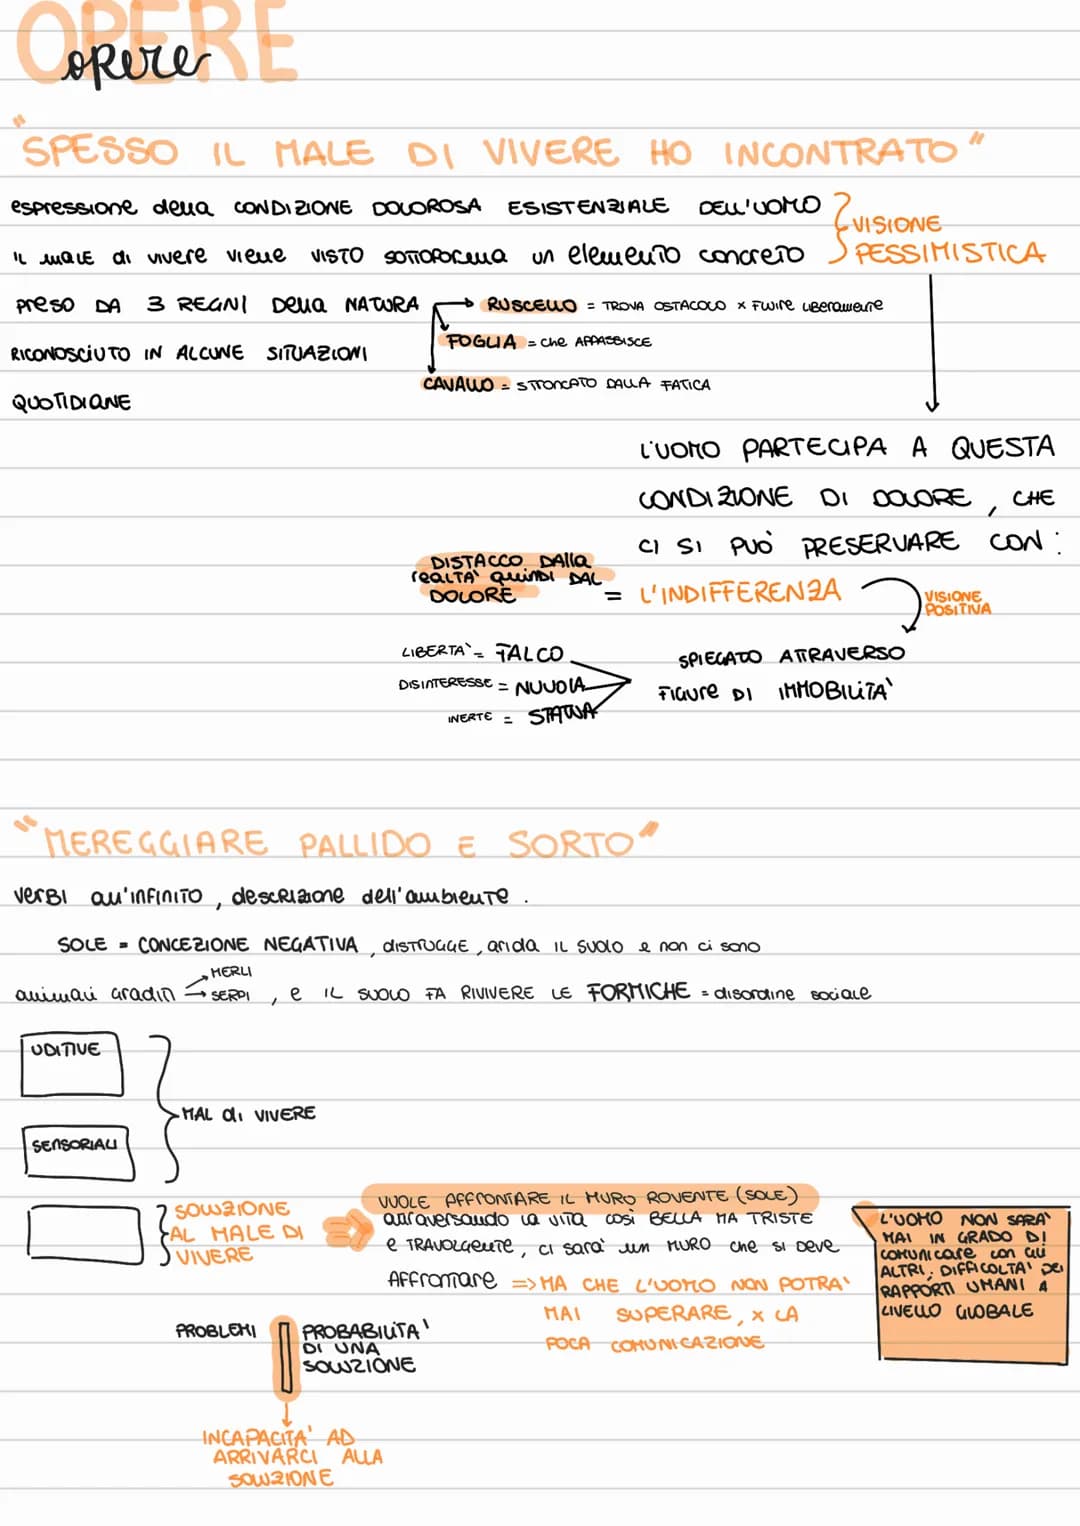 OPERE
opere
"SPESSO IL MALE DI VIVERE HO INCONTRATO"
espressione della CONDIZIONE DOLOROSA ESISTENZIALE DELL'UOMO
VISIONE
PESSIMISTICA
IL MALE di vivere viene VISTO SOTTOFORMA un elemento concreto
preso DA 3 REGNI Della NATURA
RUSCELLO = TROVA OSTACOLO x FLUIRE LIBERAMENTE
FOGLIA = che APPASSISCE
RICONOSCIUTO IN ALCUNE SITUAZIONI
CAVALLO = STRONCATO DALLA FATICA
QUOTIDIANE
L'UOMO PARTECIPA A QUESTA
CONDIZIONE DI DOLORE, CHE
CI SI PUÒ PRESERVARE CON:
DISTACCO DALLA
REALTÀ quindi DAL
DOLORE
= L'INDIFFERENZA
VISIONE
POSITIVA
LIBERTA' = FALCO
DISINTERESSE = NUVOLA
INERTE = STATUA
SPIEGATO ATTRAVERSO
FIGURE DI IMMOBILITÀ
"MEREGGIARE PALLIDO E SORTO"
verbi all'INFINITO, descrizione dell'ambiente.
SOLE = CONCEZIONE NEGATIVA, DISTRUGGE, arida IL SUOLO e non ci sono
animali gradin
MERLI
SERPI, e IL SUOLO FA RIVIVERE LE FORMICHE = disordine sociale
UDITIVE
MAL di VIVERE
SENSORIALI
SOLUZIONE
AL MALE DI
VIVERE
VUOLE AFFRONTARE IL MURO ROVENTE (SOLE)
attraversando la vita così BELLA MA TRISTE
e TRAVOLGENTE, ci sarà un MURO che si deve
AFFrontare => MA CHE L'UOMO NON POTRA'
MAI SUPERARE, x LA
POCA COMUNICAZIONE
L'UOMO NON SARA'
MAI IN GRADO DI
comunicare con gli
ALTRI: DIFFICOLTA' DEI
RAPPORTI UMANI A
LIVELLO GLOBALE
PROBLEMI
PROBABILITA'
DI UNA
SOLUZIONE
INCAPACITA' AD
ARRIVARCI ALLA
SOLUZIONE